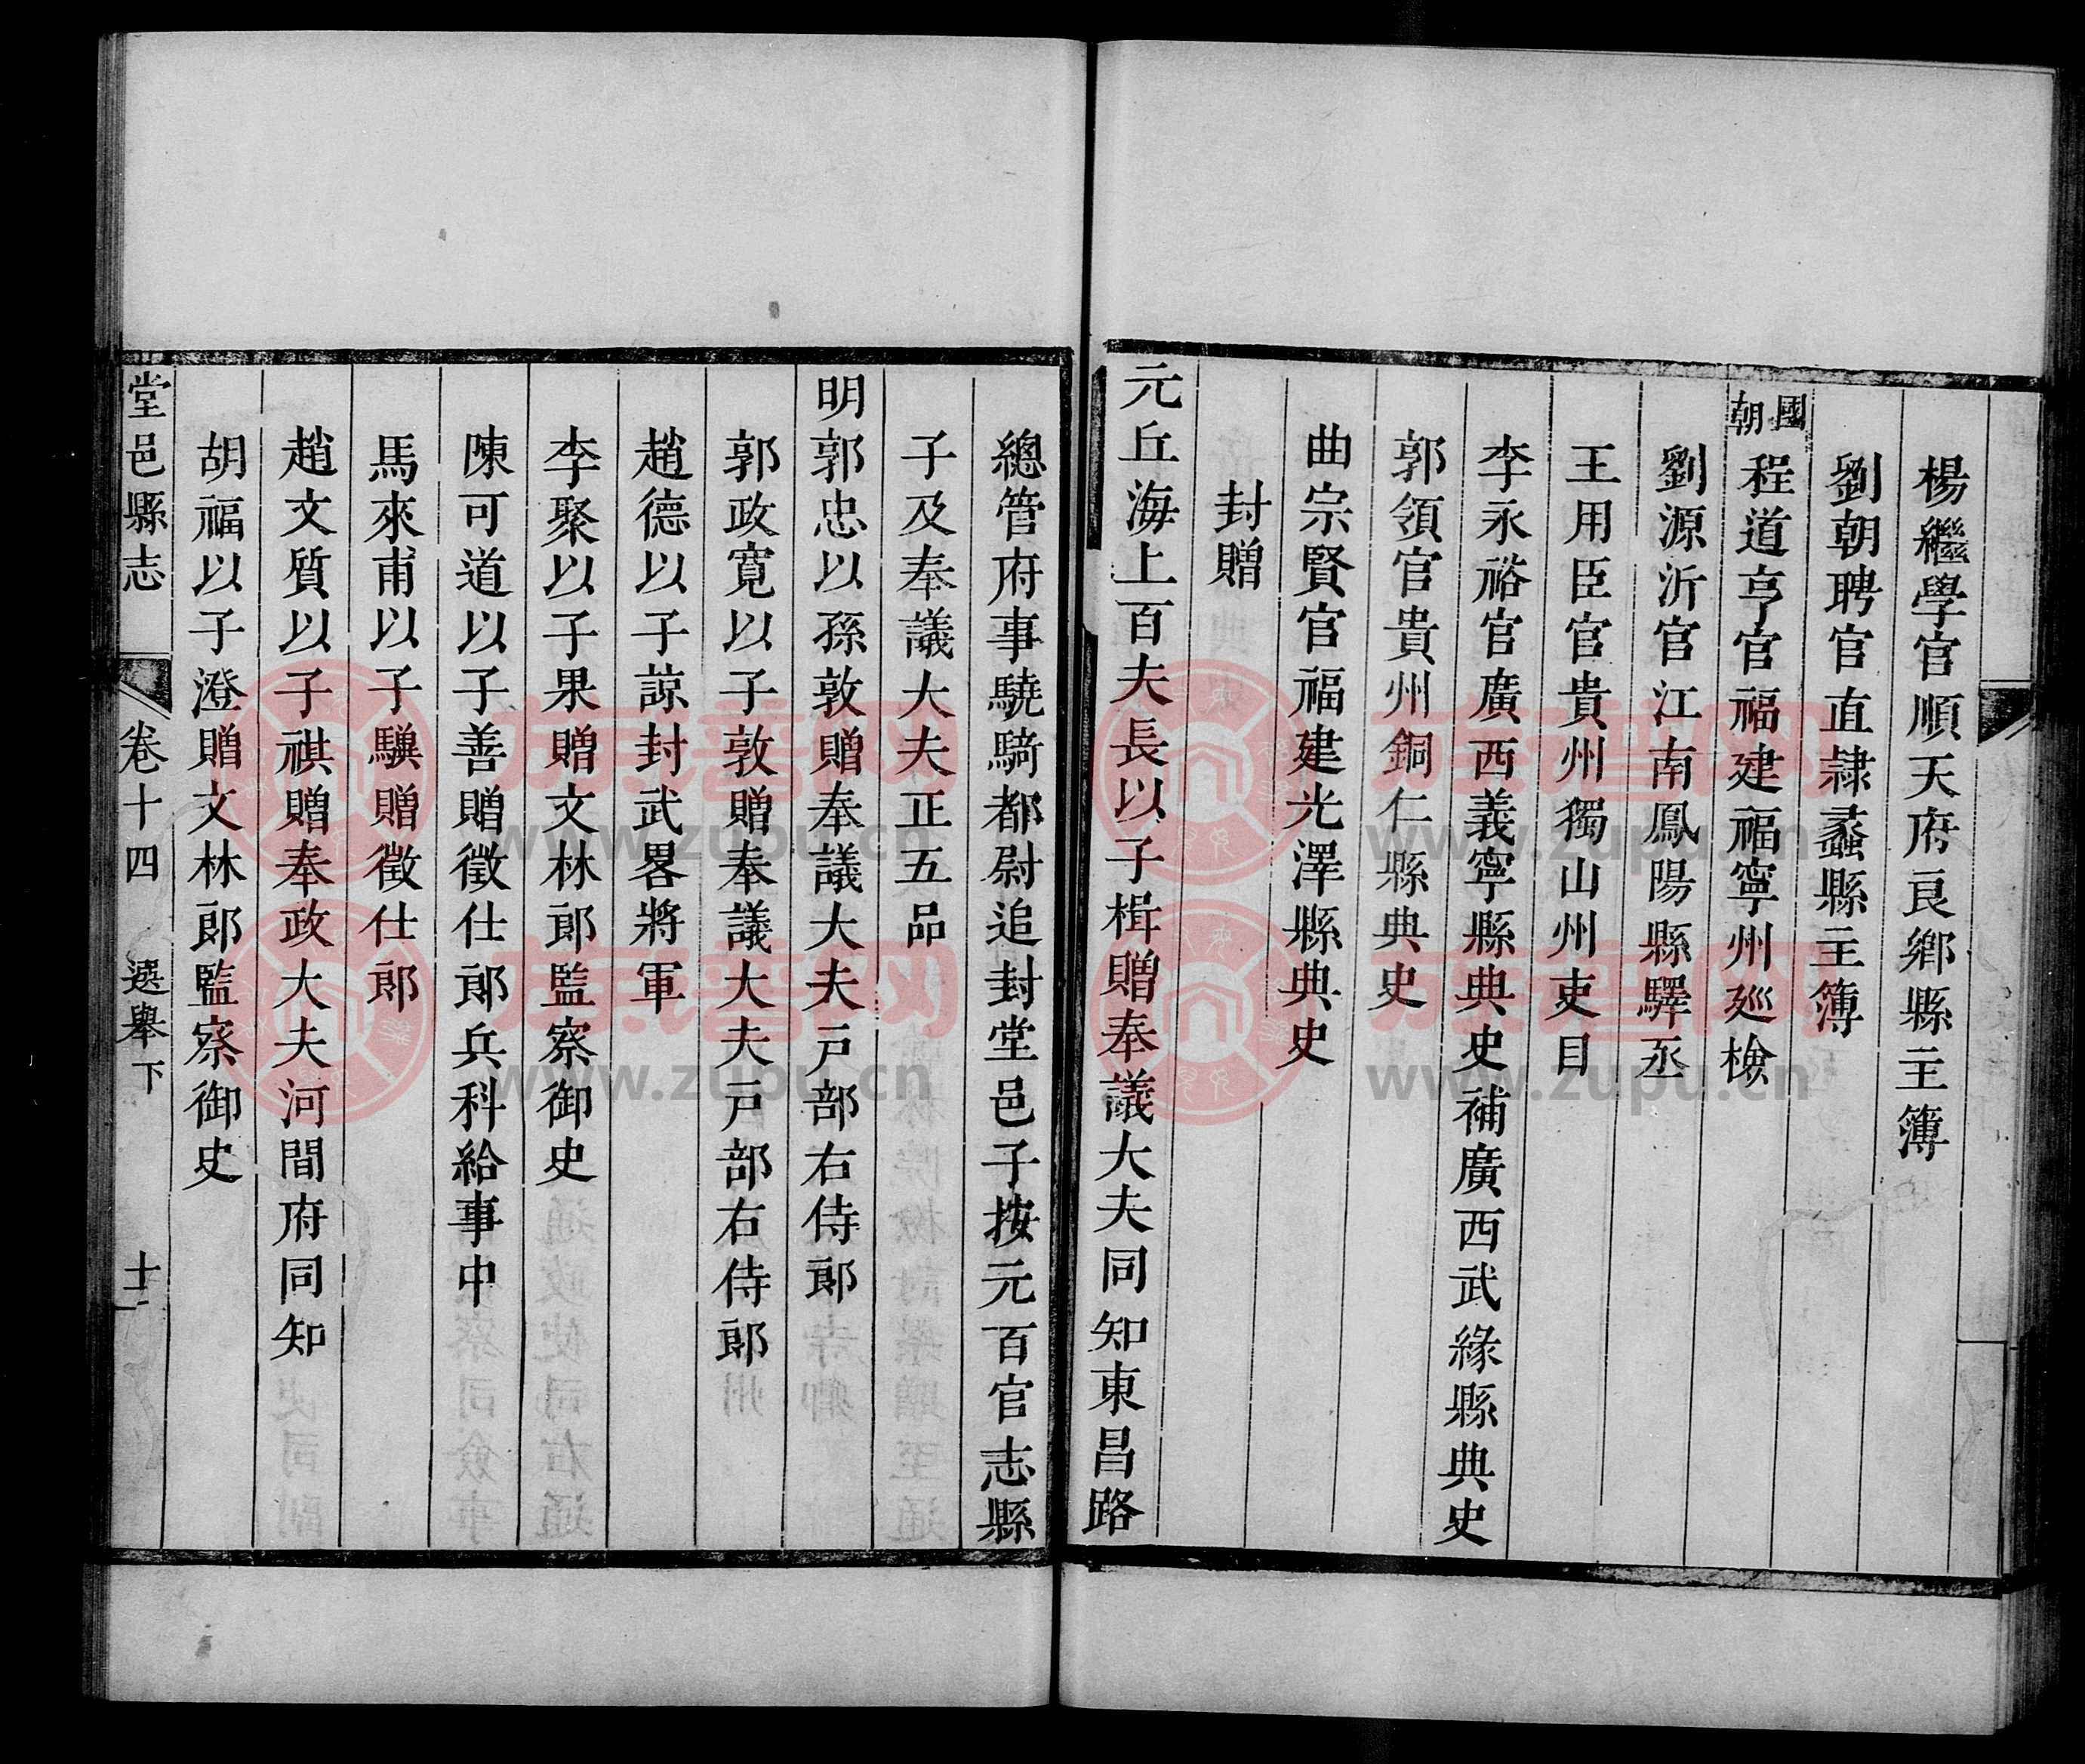 楊繼學官順天府良鄉縣主簿
劉朝聘官直隸蠡縣主簿
國朝程道亨官福建福寧州廵檢
劉源沂官江南鳳陽縣驛丞
王用臣官貴州獨山州吏目
李永裕官廣西義寧縣典史補廣西武緣縣典史
郭領官貴州銅仁縣典史
曲宗賢官福建光澤縣典史
封贈
元丘海上百夫長以子楫贈奉議大夫同知東昌路
總管府事驍騎都尉追封堂邑子按元百官志縣
子及奉議大夫正五品
明郭忠以孫敦贈奉議大夫戸部右侍郎
郭政寛以子敦贈奉議大夫戸部右侍郎
趙德以子諒封武畧將軍
李聚以子果贈文林郎監察御史
陳可道以子善贈徵仕郎兵科給事中
馬來甫以子驥贈徵仕郎
趙文質以子祺贈奉政大夫河間府同知
胡福以子澄贈文林郎監察御史
堂邑縣志 卷十四 選舉下 十一
族譜网
www.zupu.cn
族譜网
www.zupu.cn
族譜网
www.zupu.cn
族譜网
www.zupu.cn